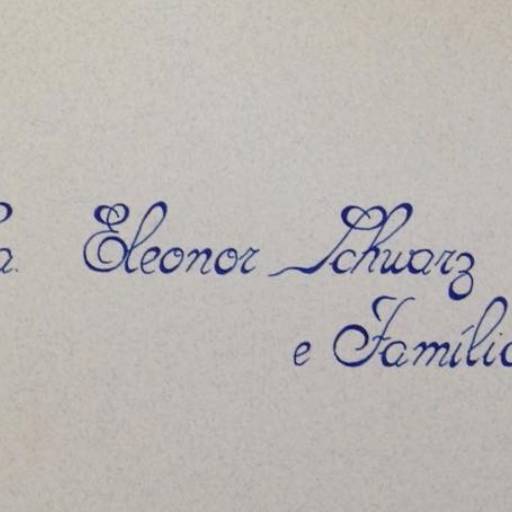 a. Eleonor Schwarz
e Família